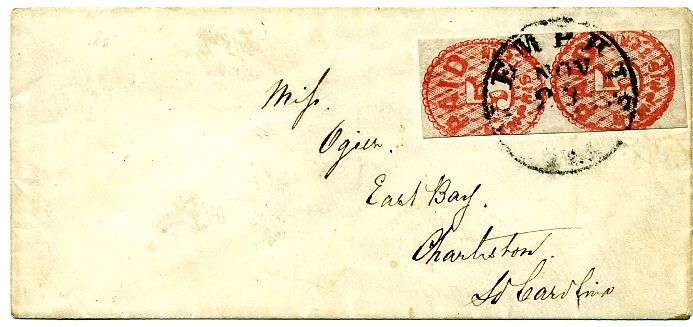 PAID
5
PAID
5
MEMPHIS
NOV
Miss.
Ogier.
East Bay.
Charleston.
So Carolina